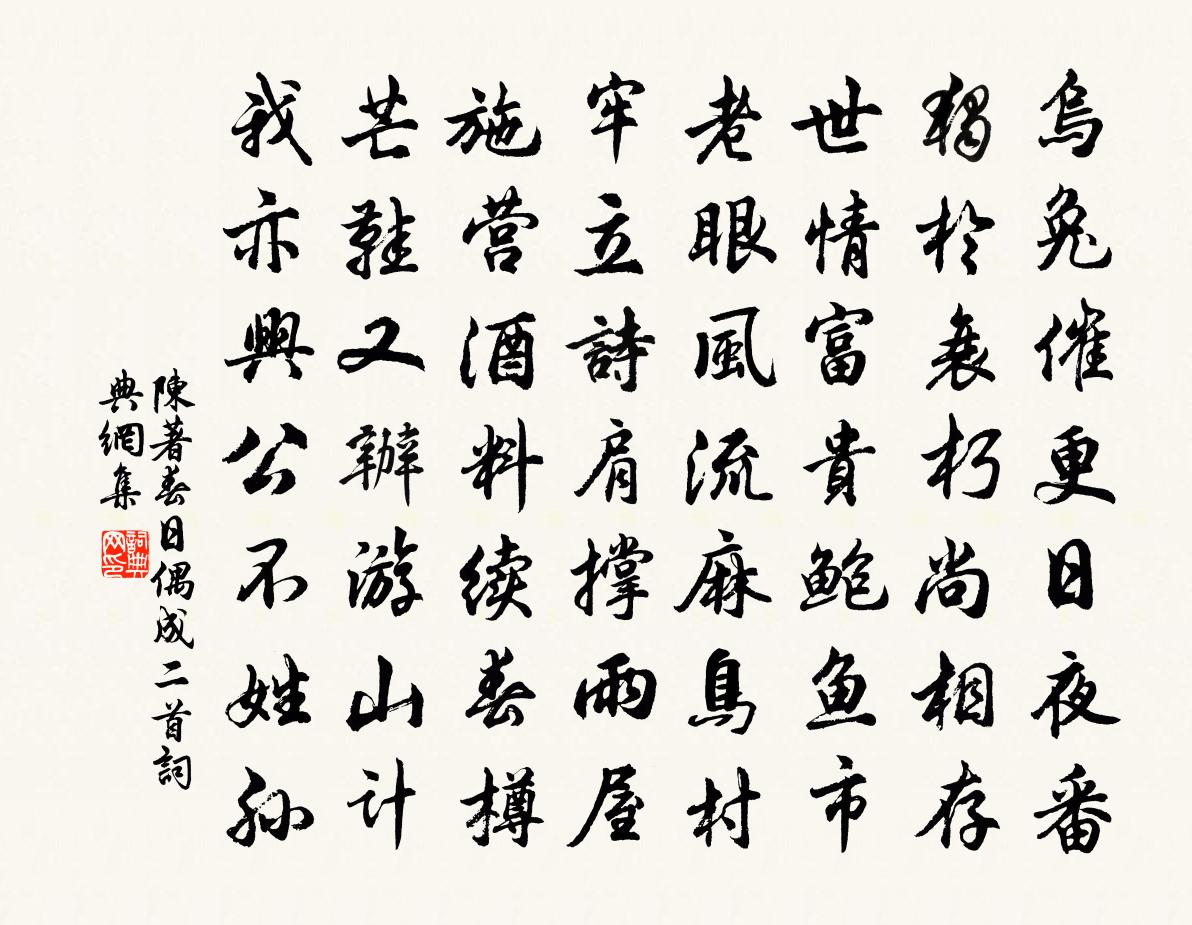 烏兔催更日夜番
獨於衰朽尚相存
世情富貴鮑鱼市
老眼風流麻鳥村
牢立詩肩撑雨屋
施营酒料续春樽
芒鞋又辦游山计
我亦興公不姓孙
陳著春日偶成二首詞
典網集
詞典网印